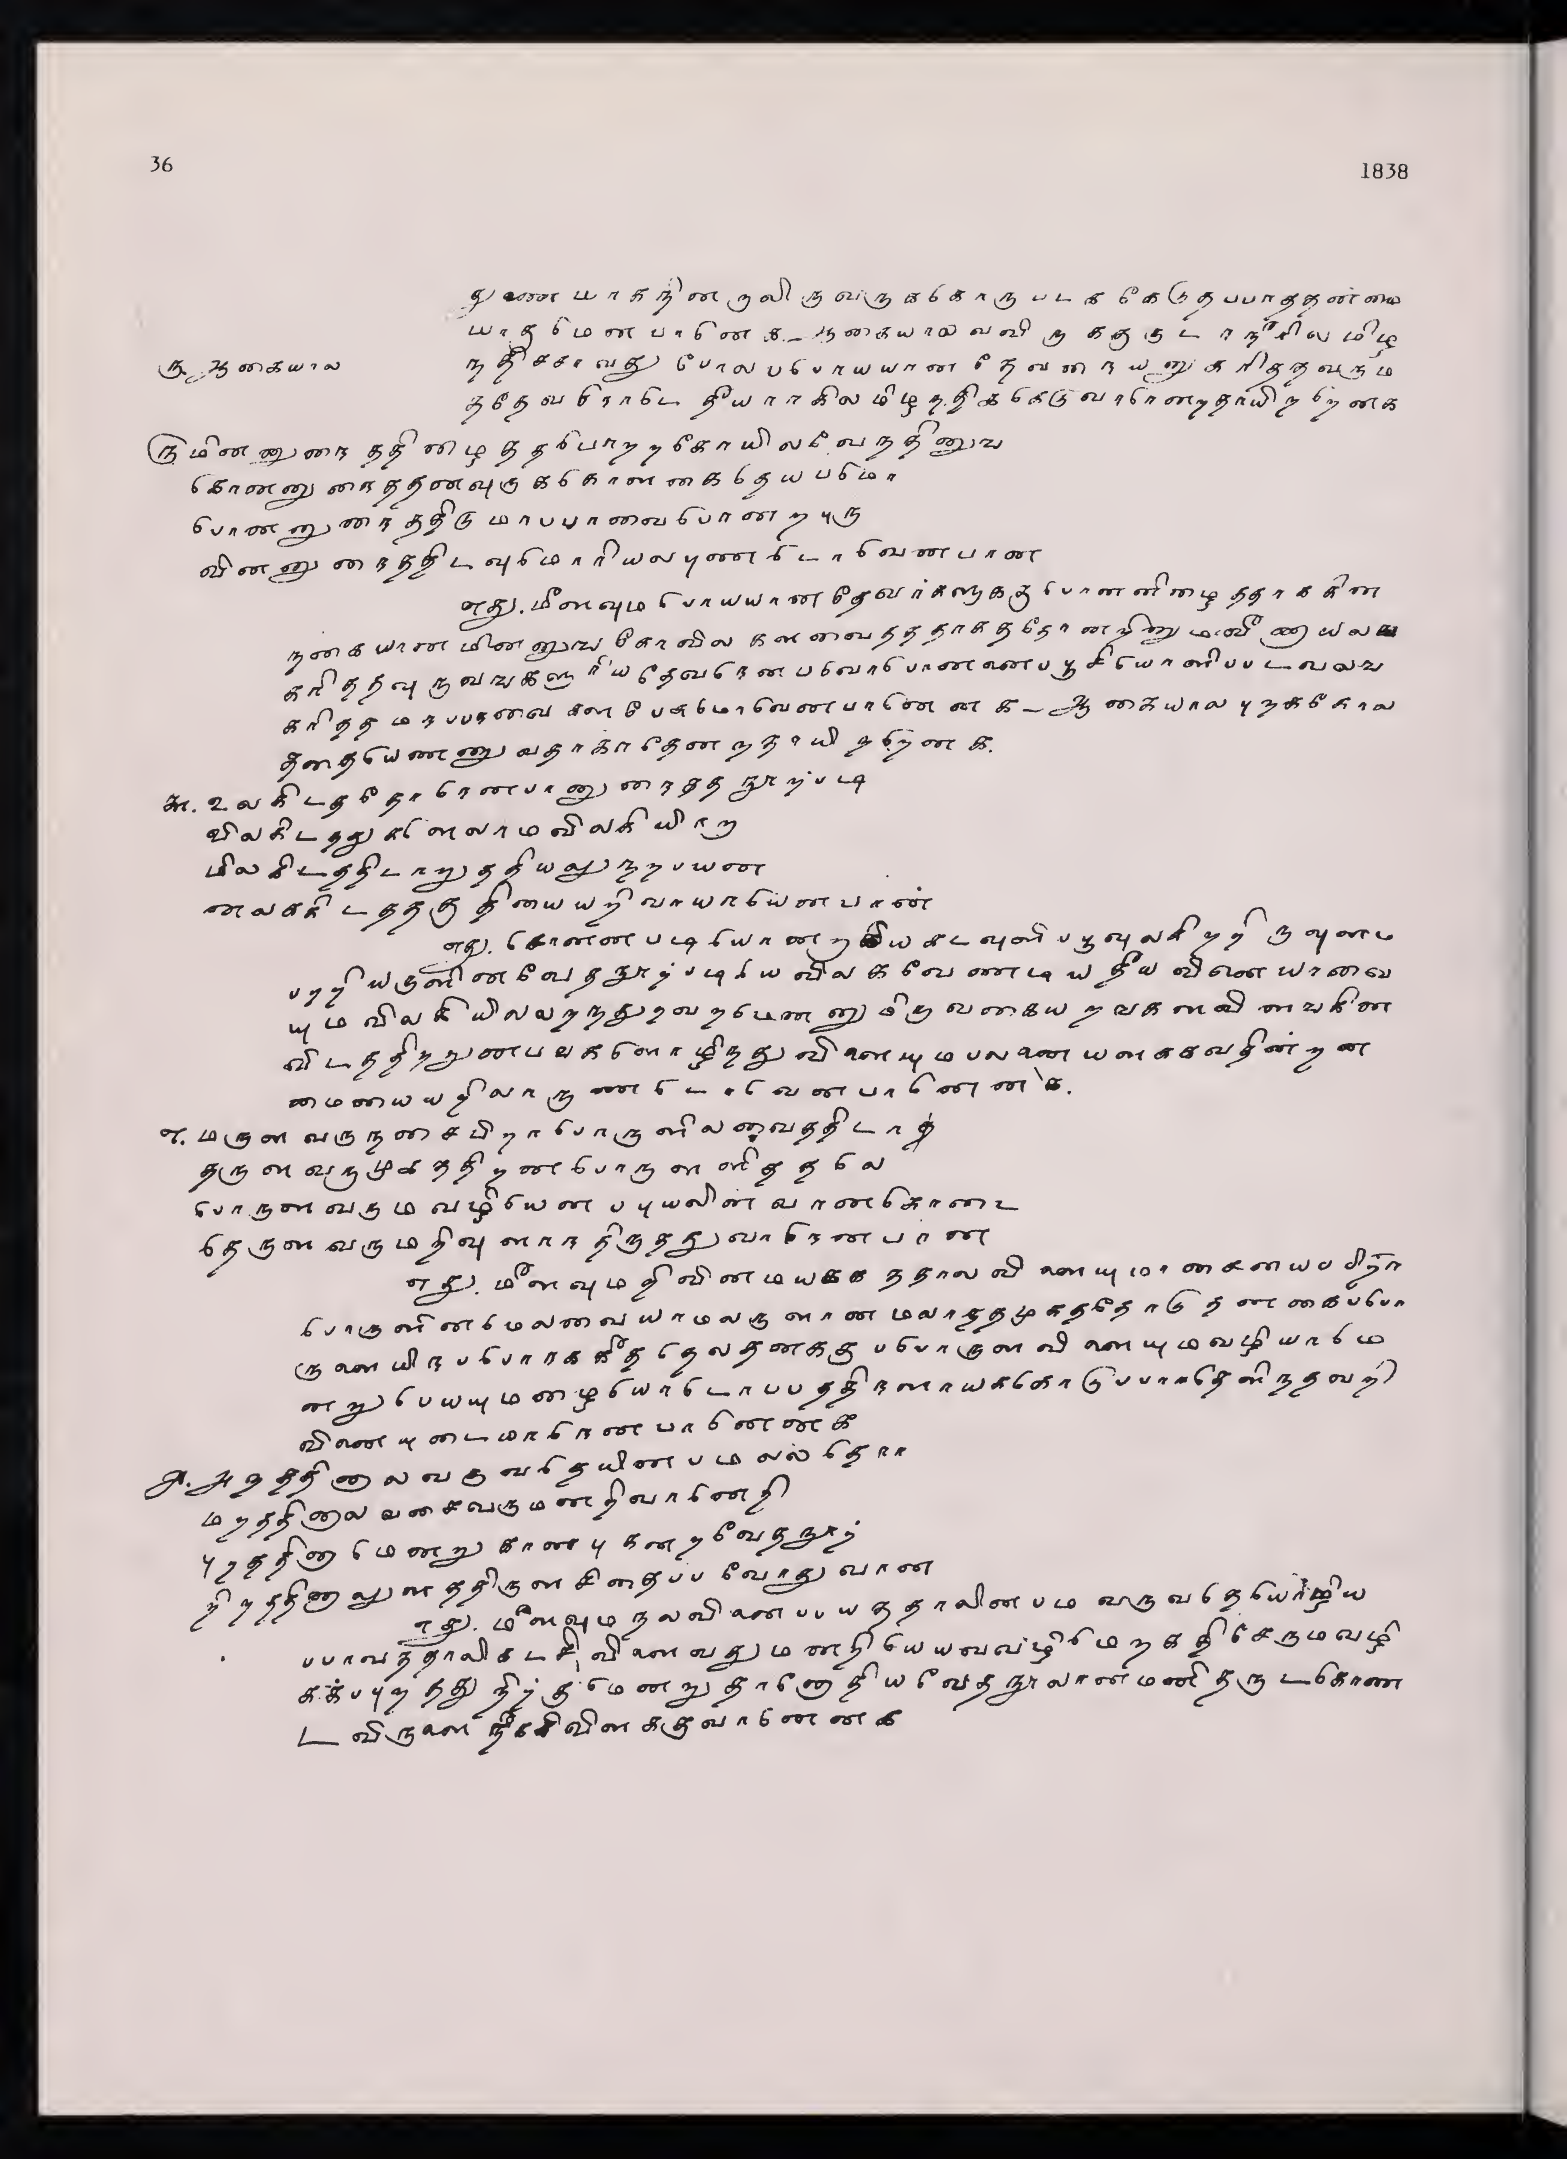 36
1838
துணையாகநினறுவிருவருககொருபடககெடுதபபாததன்மை
யாதமெனபானெக ஆகையாலவவிருககுருடாநீரிலமிழ
ரு ஆகையால
நதிசசாவது போலபபொயயான தேவனையனுசரிததவரும
ததேவரோடே தீயாராகிலமிழநதிககெடுவாரெனறதாயிறறெனக
ரு மினனுரைததிழைததபொறறகோயிலவேநதினுவ
கொனனுரைததனவுருககொளகைதேயபமொ
பொனனுரைததிடுமாபபாவைபொனறபுரு
வினனுரைததிடவுமொரியலபுணடொவெனபான
எது. மீளவும பொயயான தேவர்களுககுபொனனிழைததாககின
நகையான மினனுவகோவில களவைதததாகததோனறினும
கரிததவுருவஙகளூரிய தேவரென பவரொபொனனைபபூசியொளிபபடவலவ
கரிதத மரபபாவை கள பேசுமொவெனபானென க ஆகையால புறககோல
ததையெணணுவதாகாதென றதாயி றறெனக.
௬. உலகிடததோரெனபானுரைதத நூற்படி
விலகிடதது களெலாமவிலகியாறு
மிலகிடததிடாறுததியலுநறபயன
னலககிடதததகுதியையறிவாயாரெனபான்
எது. சொனனபடியொனறாகிய கடவுளிபபூவுலகிறறிருவுளம
பறறியருளினவேதநூற்படியெவிலகவேணடியதீயவினையாவை
யும விலகியிலலறநதுறவறமெனனுமிருவகையறஙகளவிளஙகின
விடததிறறுனபஙகளொழிநது விளையுமபலனையளககவதின்றன
மையையறிவாருணடொவெனபானென்க.
௭. மருளவருநசைபிறாபொருளிலவைததிடாத
தருளவருமுகததிறனபொருளளிததலே
பொருளவருமவழியெனபபுயலின்வானகொடை
தெருளவருமறிவுளாரதிருததுவாரெனபான
எது. மீளவுமதிவினமயகக ததாலவிளையுமாசையைபபிறா
பொருளினமெலவையாமலருளானமலாநதமுகததோடு தனகைபபொ
ருளையிரபபோரககீதலேதனககுபபொருளவிளையுமவழியாமெ
னறுபெயயுமழையொடொபபததிரளாயககொடுபபாரதெளிநதவறி
வினையுடைமாரெனபானெனக
௮. அறததினாலவருவதேயினபமலலதோர
மறததினாலவசைவருமனறிவானெறி
புறததினாமெனறுகானபுகனறவேதநூற்
றிறததினாலுளததிருளசிதைபபவோதுவான
எது. மீளவுமநலவினைபபயததாலினபமவருவதேயொழிய
பபாவததாலிகடசிவிளைவதுமனறியெயவவழிமெறகதிசேருமவழி
கக்பபுறநதுநிற்குமெனறுதானோதியவேதநூலானமனிதருடகொண
டவிருளைநீககிவிளககுவானெனக